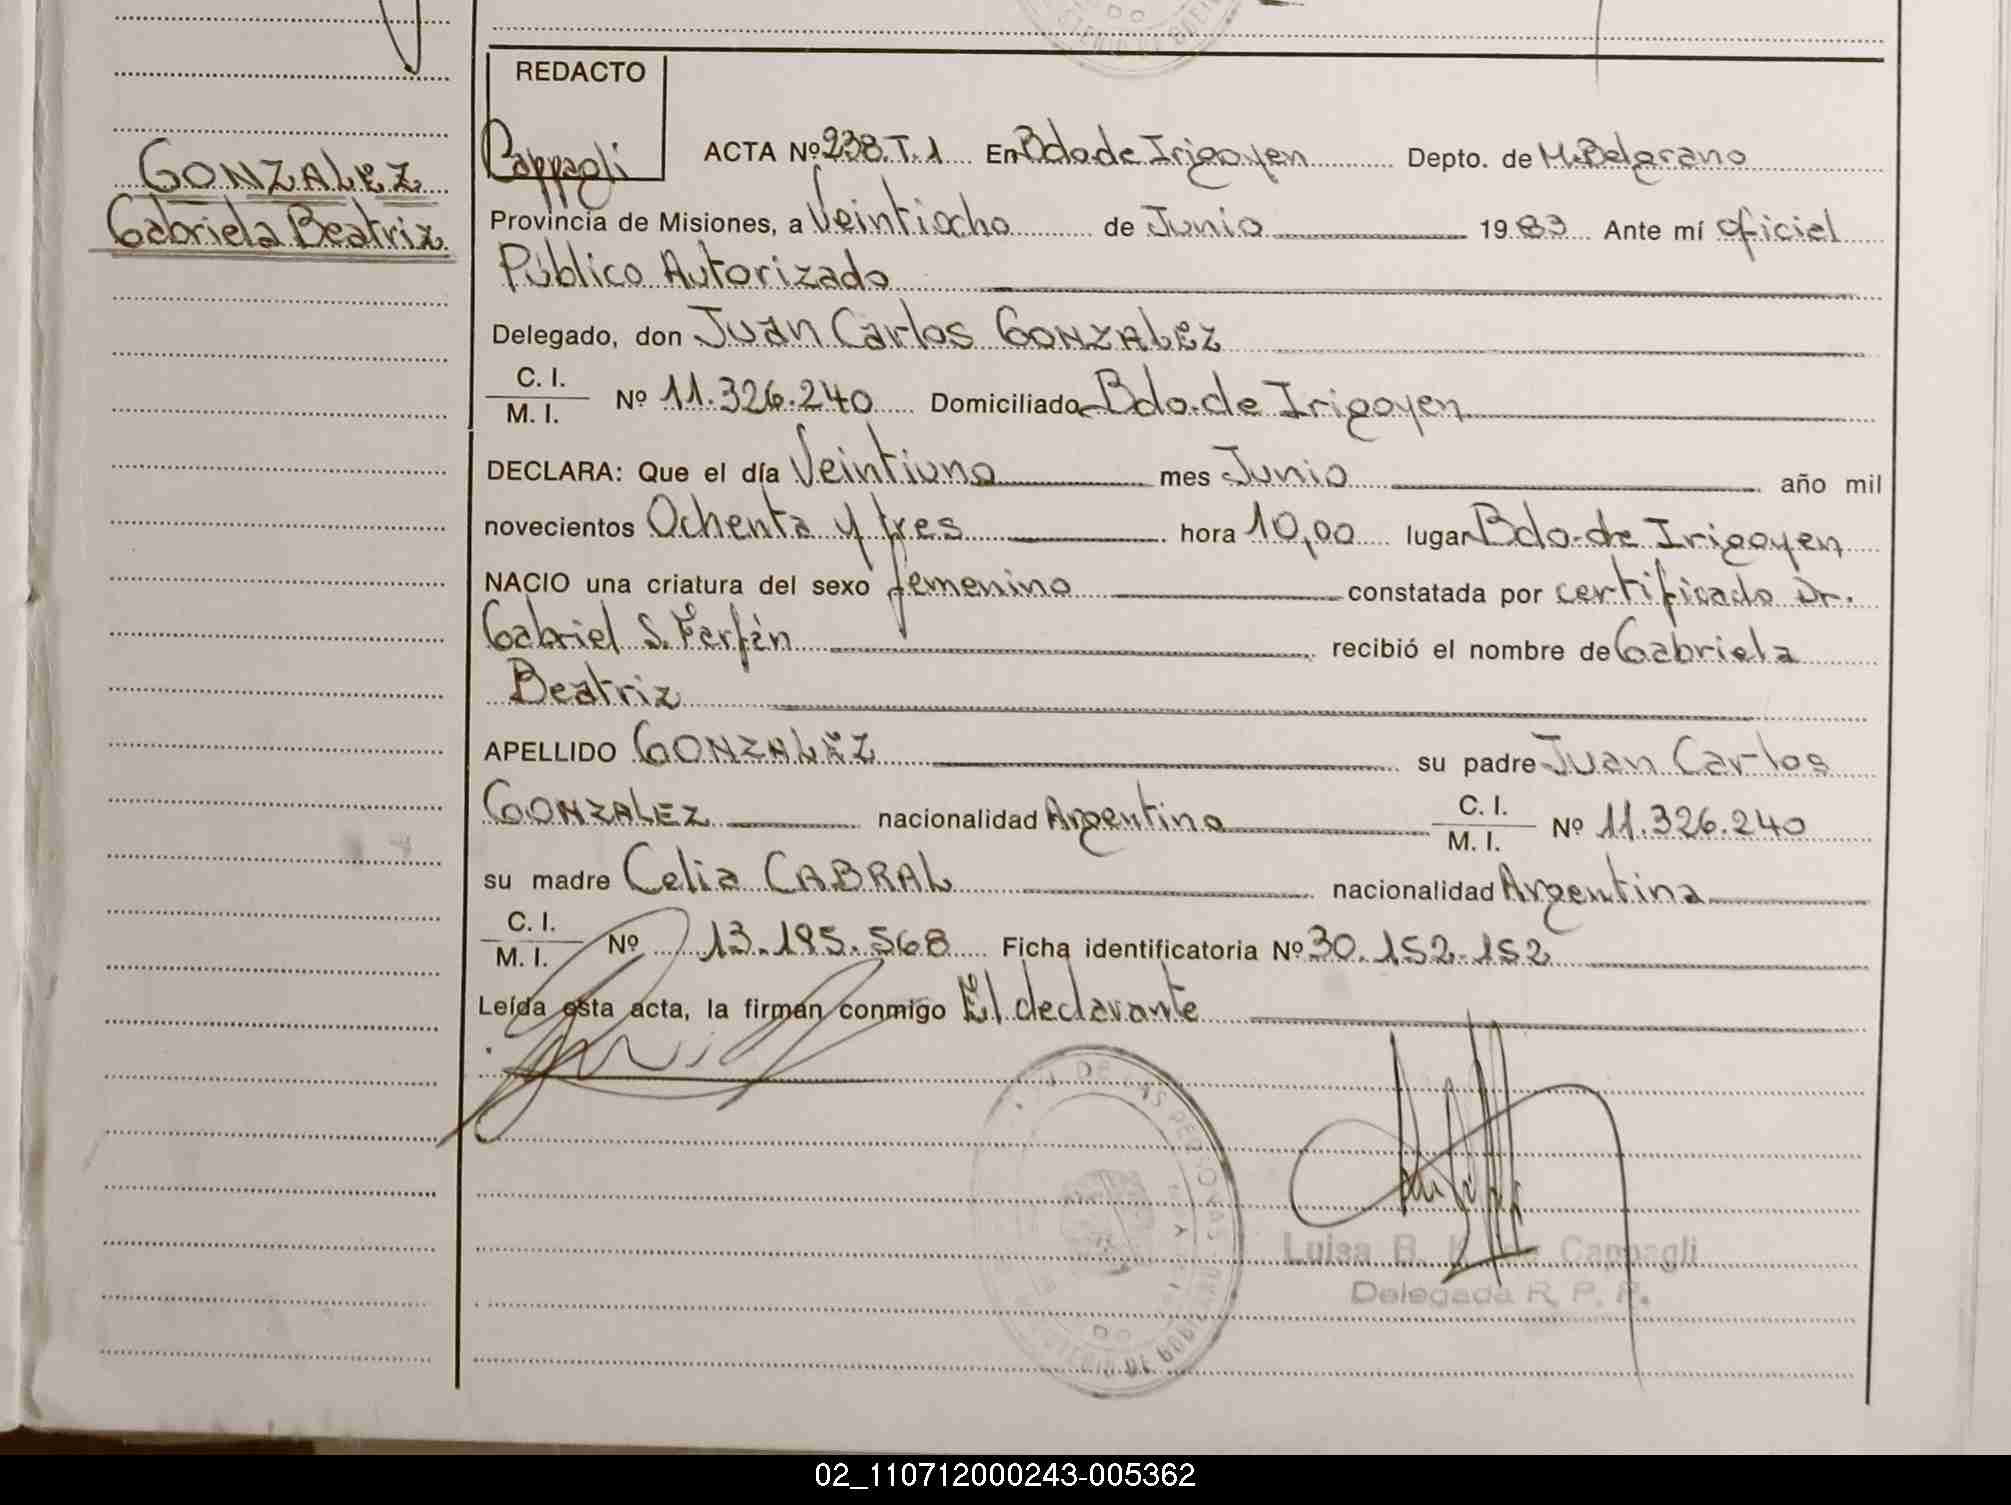 REDACTO
GONZALEZ
Gabriela Beatriz
Cappagli
ACTA Nº 238.T.1 En Bdo de Irigoyen Depto. de M. Belgrano
Provincia de Misiones, a Veintiocho de Junio 1983 Ante mí oficial
Público Autorizado
Delegado, don Juan Carlos GONZALEZ
C. I.
M. I. Nº 11.326.240 Domiciliado Bdo. de Irigoyen
DECLARA: Que el día Veintiuno mes Junio año mil
novecientos Ochenta y tres hora 10,00 lugar Bdo. de Irigoyen
NACIO una criatura del sexo femenino constatada por certificado Dr.
Gabriel S. Farfán recibió el nombre de Gabriela
Beatriz
APELLIDO GONZALEZ su padre Juan Carlos
GONZALEZ nacionalidad Argentina C. I.
M. I. Nº 11.326.240
su madre Celia CABRAL nacionalidad Argentina
C. I.
M. I. Nº 13.195.568 Ficha identificatoria Nº 30.152.152
Leída esta acta, la firman conmigo El declarante
DE LAS PERSONAS
Luisa B. K. de Cappagli
Delegada R. P. P.
02_110712000243-005362